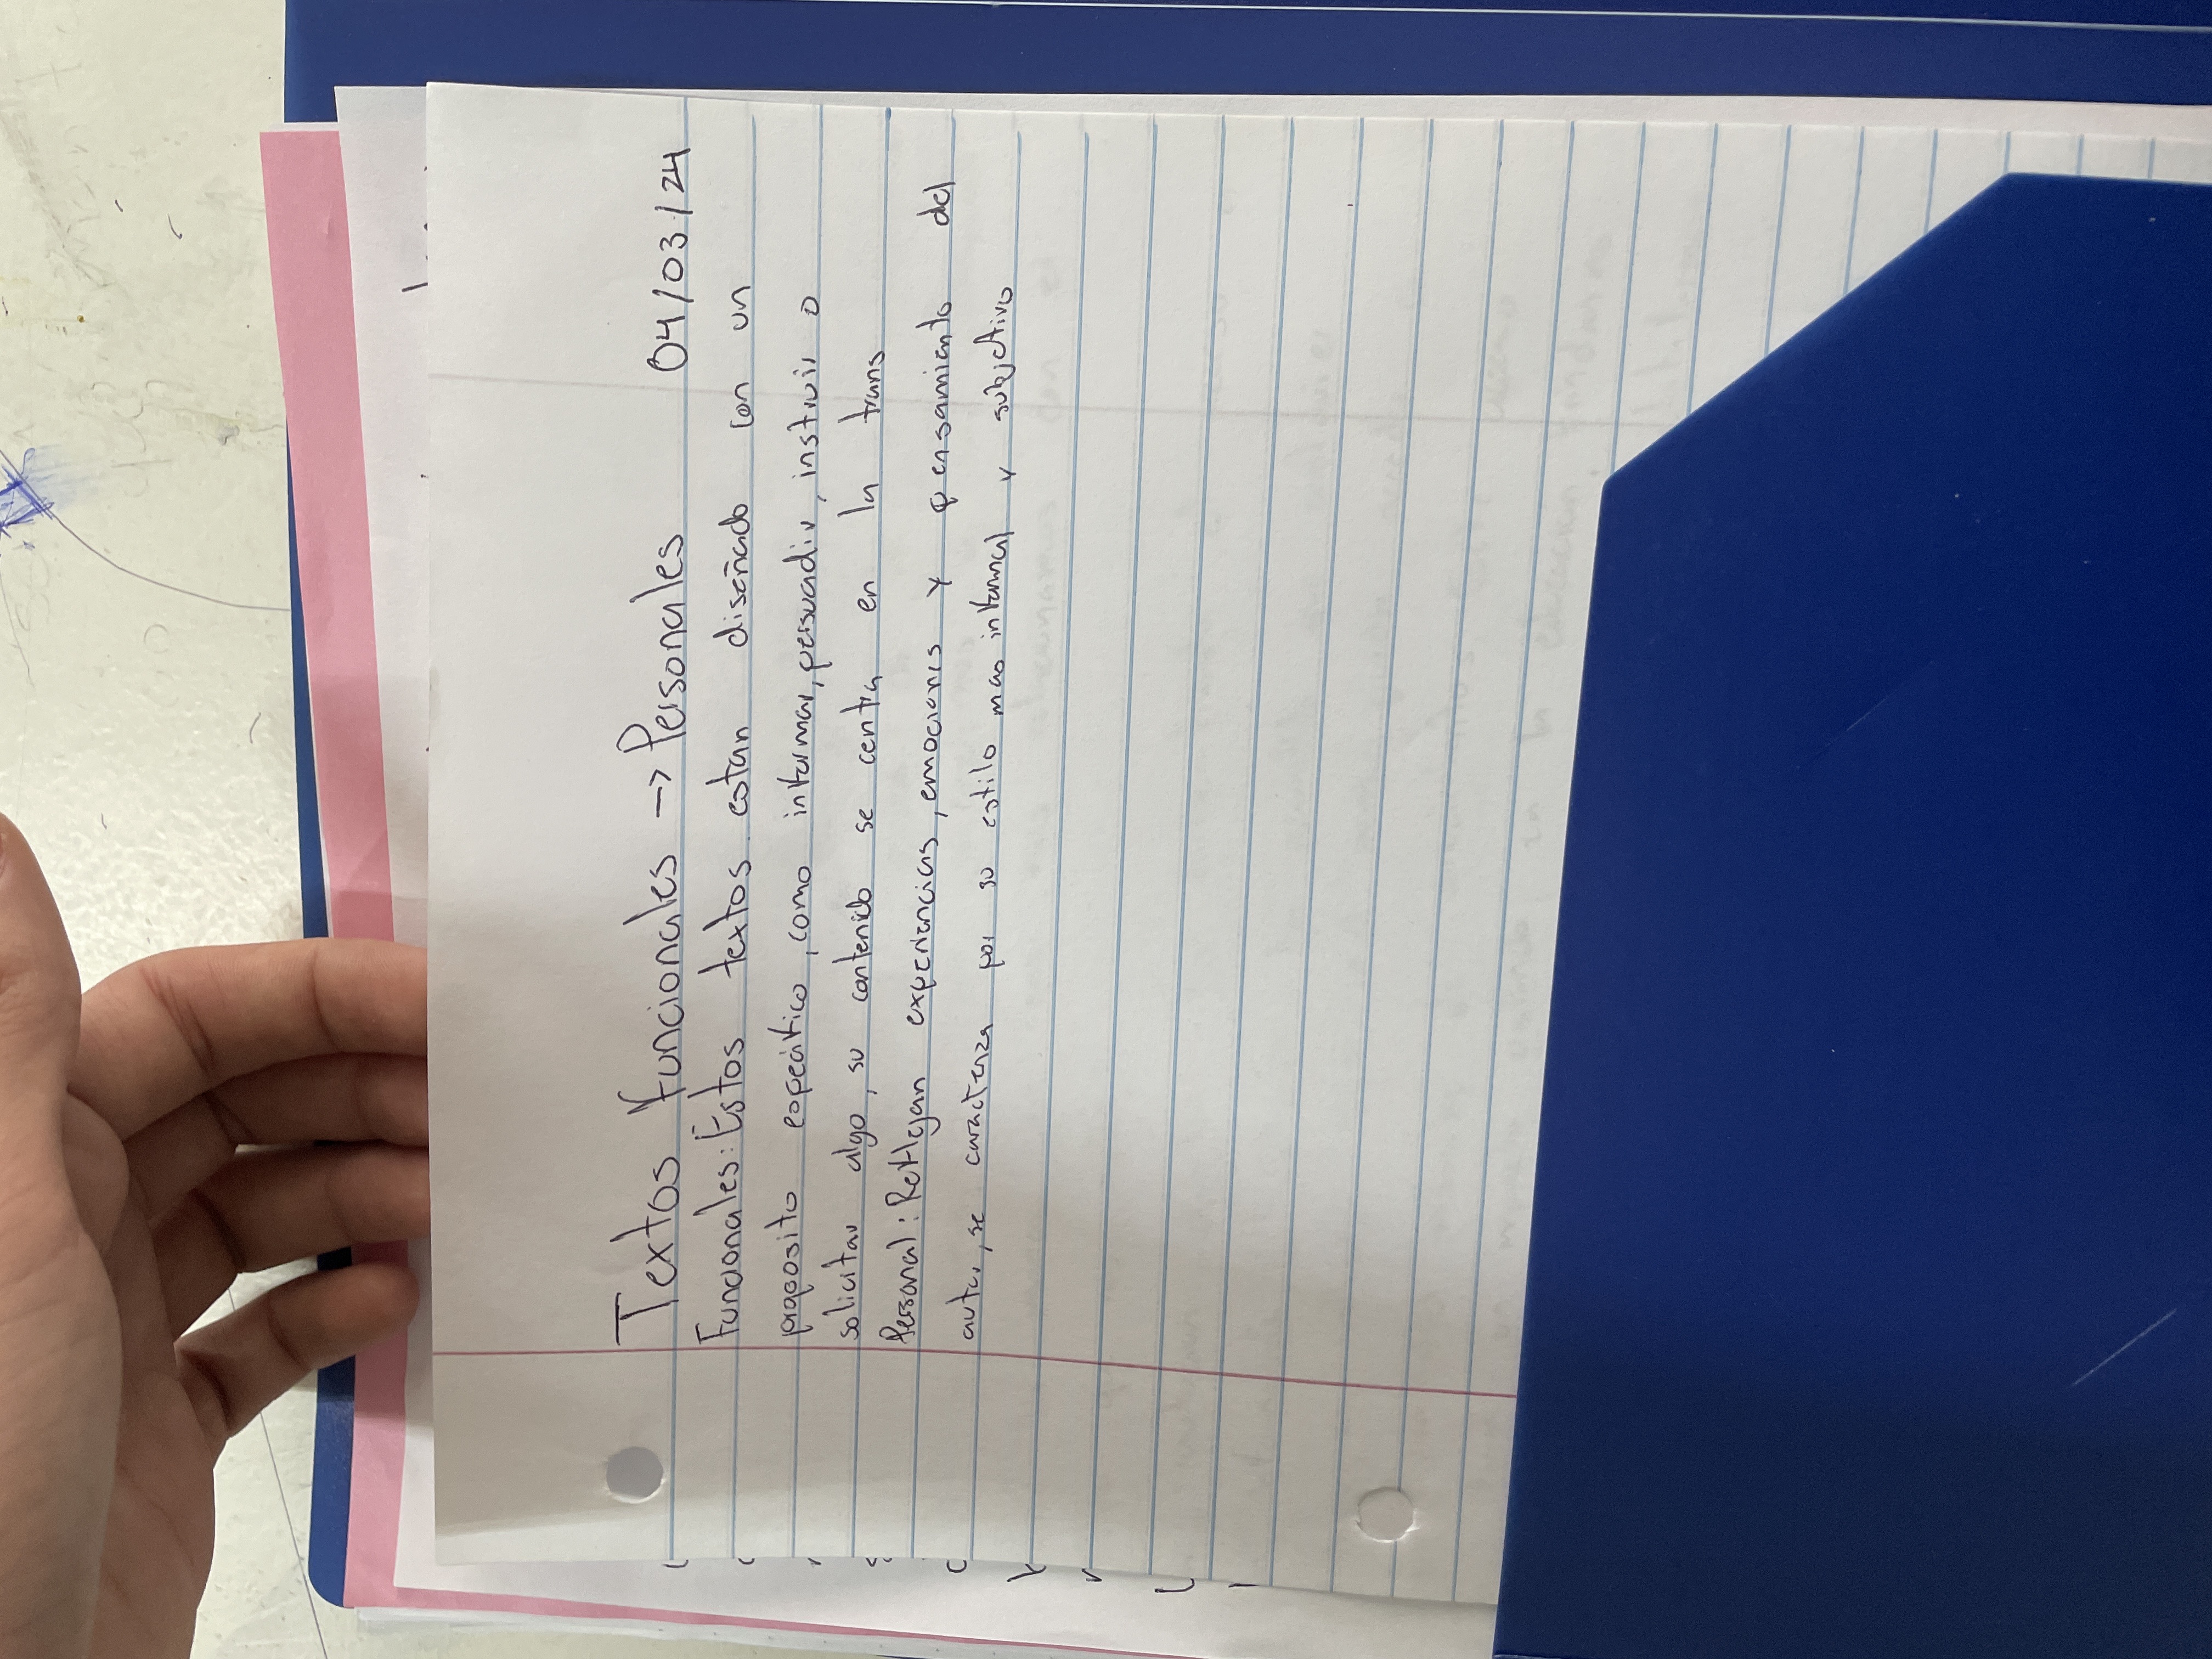 Textos funcionales → Personales 04/03/24
Funcionales: Estos textos estan diseñado con un
proposito específico, como informar, persuadir, instruir o
solicitar algo, su contenido se centra en la trans
Personal: Reflejan experiencias, emociones y pensamiento del
autor, se caracteriza por su estilo mas informal y subjetivo